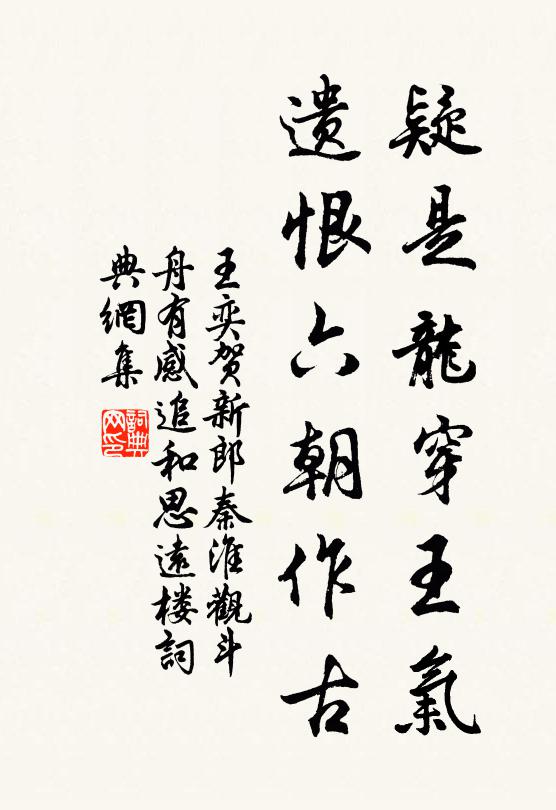 疑是龍穿王氣
遺恨六朝作古
王奕贺新郎秦淮觀斗
舟有感追和思遠楼詞
典網集
詞典
网印